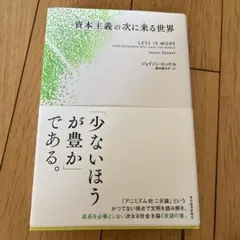 資本主義の次に来る世界
LESS IS MORE
HOW DEGROWTH WILL SAVE THE WORLD
JASON HICKEL
ジェイソン・ヒッケル
「少ないほう
が豊か」
である。
「アニミズム対二元論」という
かつてない視点で文明を読み解き、
成長を必要としない次なる社会を描く希望の書。
東洋経済新報社